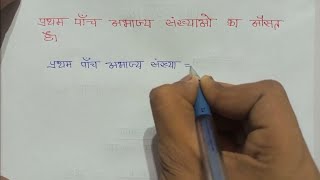 प्रथम पाँच अभाज्य संख्याओं का औसत
है।
प्रथम पाँच अभाज्य संख्या =